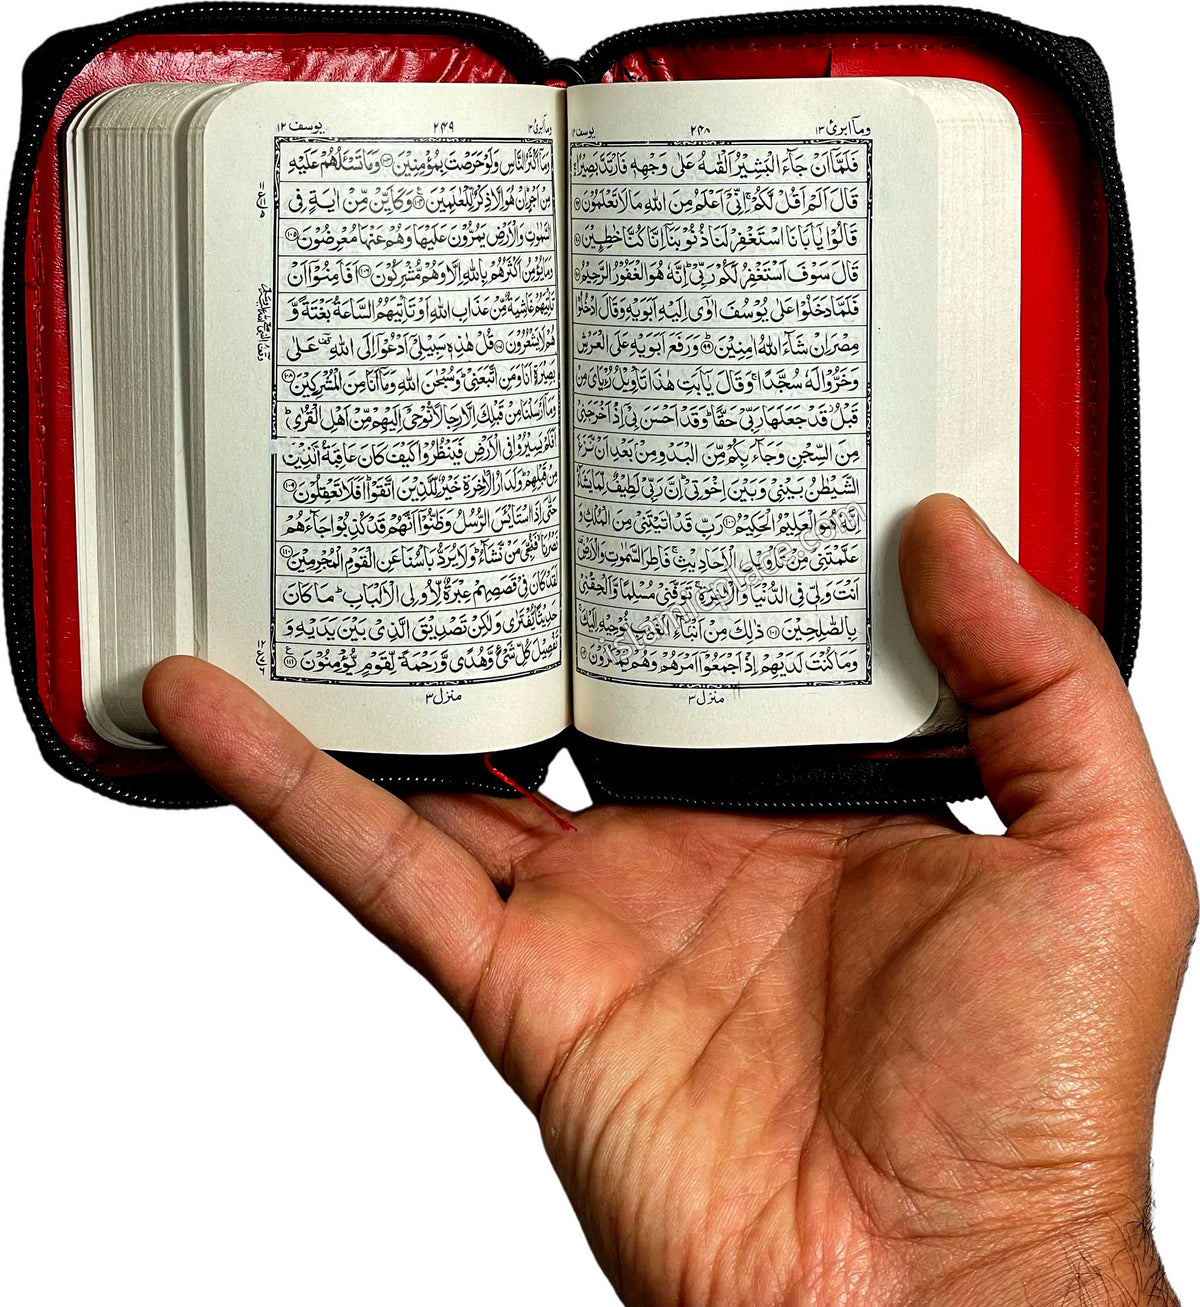 وماۤ ابرئ ١٣
٢٤٨
يوسف ١٢
فَلَمَّاۤ اَنْ جَآءَ الْبَشِيْرُ اَلْقٰىهُ عَلٰى وَجْهِهٖ فَارْتَدَّ بَصِيْرًا ۚ
قَالَ اَلَمْ اَقُلْ لَّكُمْ ۙۚ اِنِّيْۤ اَعْلَمُ مِنَ اللّٰهِ مَا لَا تَعْلَمُوْنَ
قَالُوْا يٰۤاَبَانَا اسْتَغْفِرْ لَنَا ذُنُوْبَنَاۤ اِنَّا كُنَّا خٰطِـِٕيْنَ
قَالَ سَوْفَ اَسْتَغْفِرُ لَكُمْ رَبِّيْ ؕ اِنَّهٗ هُوَ الْغَفُوْرُ الرَّحِيْمُ
فَلَمَّا دَخَلُوْا عَلٰى يُوْسُفَ اٰوٰۤى اِلَيْهِ اَبَوَيْهِ وَقَالَ ادْخُلُوْا
مِصْرَ اِنْ شَآءَ اللّٰهُ اٰمِنِيْنَ ٩٩ وَرَفَعَ اَبَوَيْهِ عَلَى الْعَرْشِ
وَخَرُّوْا لَهٗ سُجَّدًا ۚ وَقَالَ يٰۤاَبَتِ هٰذَا تَاْوِيْلُ رُءْيَايَ مِنْ
قَبْلُ ؗ قَدْ جَعَلَهَا رَبِّيْ حَقًّا ؕ وَقَدْ اَحْسَنَ بِيْۤ اِذْ اَخْرَجَنِيْ
مِنَ السِّجْنِ وَجَآءَ بِكُمْ مِّنَ الْبَدْوِ مِنْۢ بَعْدِ اَنْ نَّزَغَ
الشَّيْطٰنُ بَيْنِيْ وَبَيْنَ اِخْوَتِيْ ؕ اِنَّ رَبِّيْ لَطِيْفٌ لِّمَا يَشَآءُ ؕ
اِنَّهٗ هُوَ الْعَلِيْمُ الْحَكِيْمُ ١٠٠ رَبِّ قَدْ اٰتَيْتَنِيْ مِنَ الْمُلْكِ وَ
عَلَّمْتَنِيْ مِنْ تَاْوِيْلِ الْاَحَادِيْثِ ۚ فَاطِرَ السَّمٰوٰتِ وَالْاَرْضِ ۫
اَنْتَ وَلِيّٖ فِي الدُّنْيَا وَالْاٰخِرَةِ ۚ تَوَفَّنِيْ مُسْلِمًا وَّاَلْحِقْنِيْ
بِالصّٰلِحِيْنَ ١٠١ ذٰلِكَ مِنْ اَنْۢبَآءِ الْغَيْبِ نُوْحِيْهِ اِلَيْكَ ۚ
وَمَا كُنْتَ لَدَيْهِمْ اِذْ اَجْمَعُوْۤا اَمْرَهُمْ وَهُمْ يَمْكُرُوْنَ
منزل ٣
وماۤ ابرئ ١٣
٢٤٩
يوسف ١٢
وَمَاۤ اَكْثَرُ النَّاسِ وَلَوْ حَرَصْتَ بِمُؤْمِنِيْنَ ١٠٣ وَمَا تَسْـَٔلُهُمْ عَلَيْهِ
مِنْ اَجْرٍ ؕ اِنْ هُوَ اِلَّا ذِكْرٌ لِّلْعٰلَمِيْنَ ١٠٤ وَكَاَيِّنْ مِّنْ اٰيَةٍ فِي
السَّمٰوٰتِ وَالْاَرْضِ يَمُرُّوْنَ عَلَيْهَا وَهُمْ عَنْهَا مُعْرِضُوْنَ ١٠٥
وَمَا يُؤْمِنُ اَكْثَرُهُمْ بِاللّٰهِ اِلَّا وَهُمْ مُّشْرِكُوْنَ ١٠٦ اَفَاَمِنُوْۤا اَنْ
تَاْتِيَهُمْ غَاشِيَةٌ مِّنْ عَذَابِ اللّٰهِ اَوْ تَاْتِيَهُمُ السَّاعَةُ بَغْتَةً وَّ
هُمْ لَا يَشْعُرُوْنَ ١٠٧ قُلْ هٰذِهٖ سَبِيْلِيْۤ اَدْعُوْۤا اِلَى اللّٰهِ ؔ عَلٰى
بَصِيْرَةٍ اَنَا وَمَنِ اتَّبَعَنِيْ ؕ وَسُبْحٰنَ اللّٰهِ وَمَاۤ اَنَا مِنَ الْمُشْرِكِيْنَ ١٠٨
وَمَاۤ اَرْسَلْنَا مِنْ قَبْلِكَ اِلَّا رِجَالًا نُّوْحِيْۤ اِلَيْهِمْ مِّنْ اَهْلِ الْقُرٰى ؕ
اَفَلَمْ يَسِيْرُوْا فِي الْاَرْضِ فَيَنْظُرُوْا كَيْفَ كَانَ عَاقِبَةُ الَّذِيْنَ
مِنْ قَبْلِهِمْ ؕ وَلَدَارُ الْاٰخِرَةِ خَيْرٌ لِّلَّذِيْنَ اتَّقَوْا ؕ اَفَلَا تَعْقِلُوْنَ ١٠٩
حَتّٰۤى اِذَا اسْتَيْـَٔسَ الرُّسُلُ وَظَنُّوْۤا اَنَّهُمْ قَدْ كُذِبُوْا جَآءَهُمْ
نَصْرُنَا ۙ فَنُجِّيَ مَنْ نَّشَآءُ ؕ وَلَا يُرَدُّ بَاْسُنَا عَنِ الْقَوْمِ الْمُجْرِمِيْنَ ١١٠
لَقَدْ كَانَ فِيْ قَصَصِهِمْ عِبْرَةٌ لِّاُولِي الْاَلْبَابِ ؕ مَا كَانَ
حَدِيْثًا يُّفْتَرٰى وَلٰكِنْ تَصْدِيْقَ الَّذِيْ بَيْنَ يَدَيْهِ وَ
تَفْصِيْلَ كُلِّ شَيْءٍ وَّهُدًى وَّرَحْمَةً لِّقَوْمٍ يُّؤْمِنُوْنَ ١١١
منزل ٣
islamicplace.com